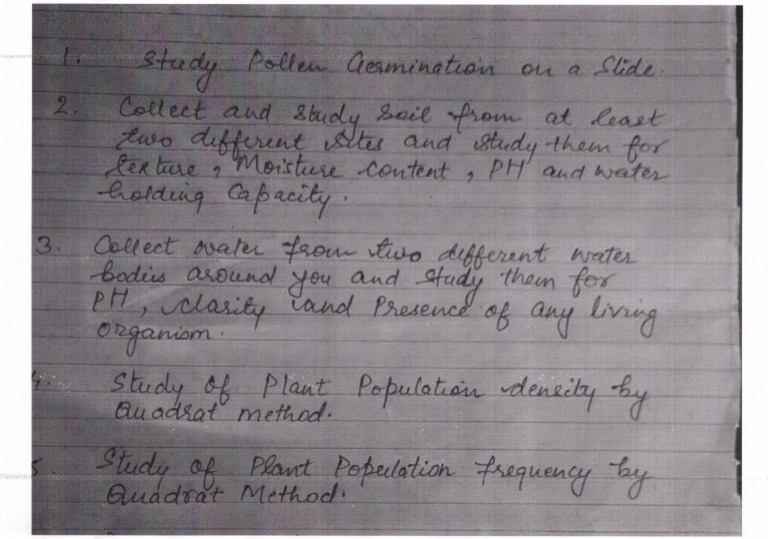 1. Study Pollen Germination on a Slide.
2. Collect and study Soil from at least
two different sites and study them for
texture, Moisture content, PH and water
holding Capacity.
3. Collect water from two different water
bodies around you and study them for
PH, clarity and Presence of any living
organism.
4. Study of Plant Population density by
Quadrat method.
5. Study of Plant Population frequency by
Quadrat Method.